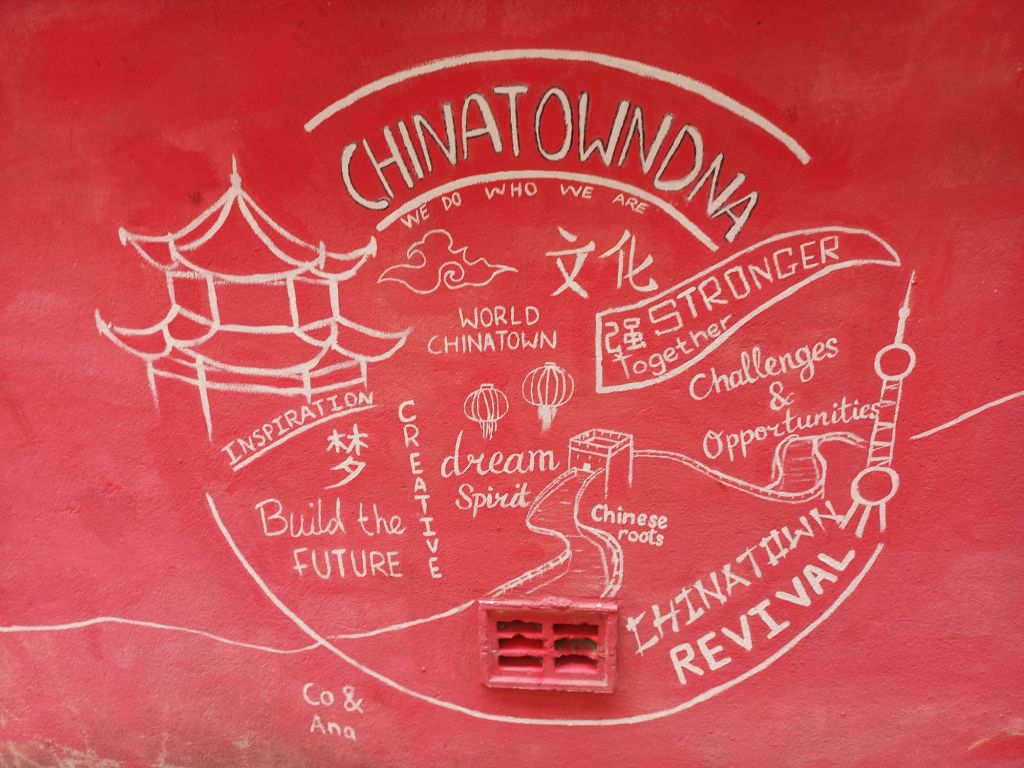 CHINATOWNDNA
WE DO WHO WE ARE
文化
STRONGER
强
together
WORLD
CHINATOWN
Challenges
&
Opportunities
INSPIRATION
梦
CREATIVE
dream
Spirit
Build the
FUTURE
Chinese
roots
CHINATOWN
REVIVAL
Co &
Ana